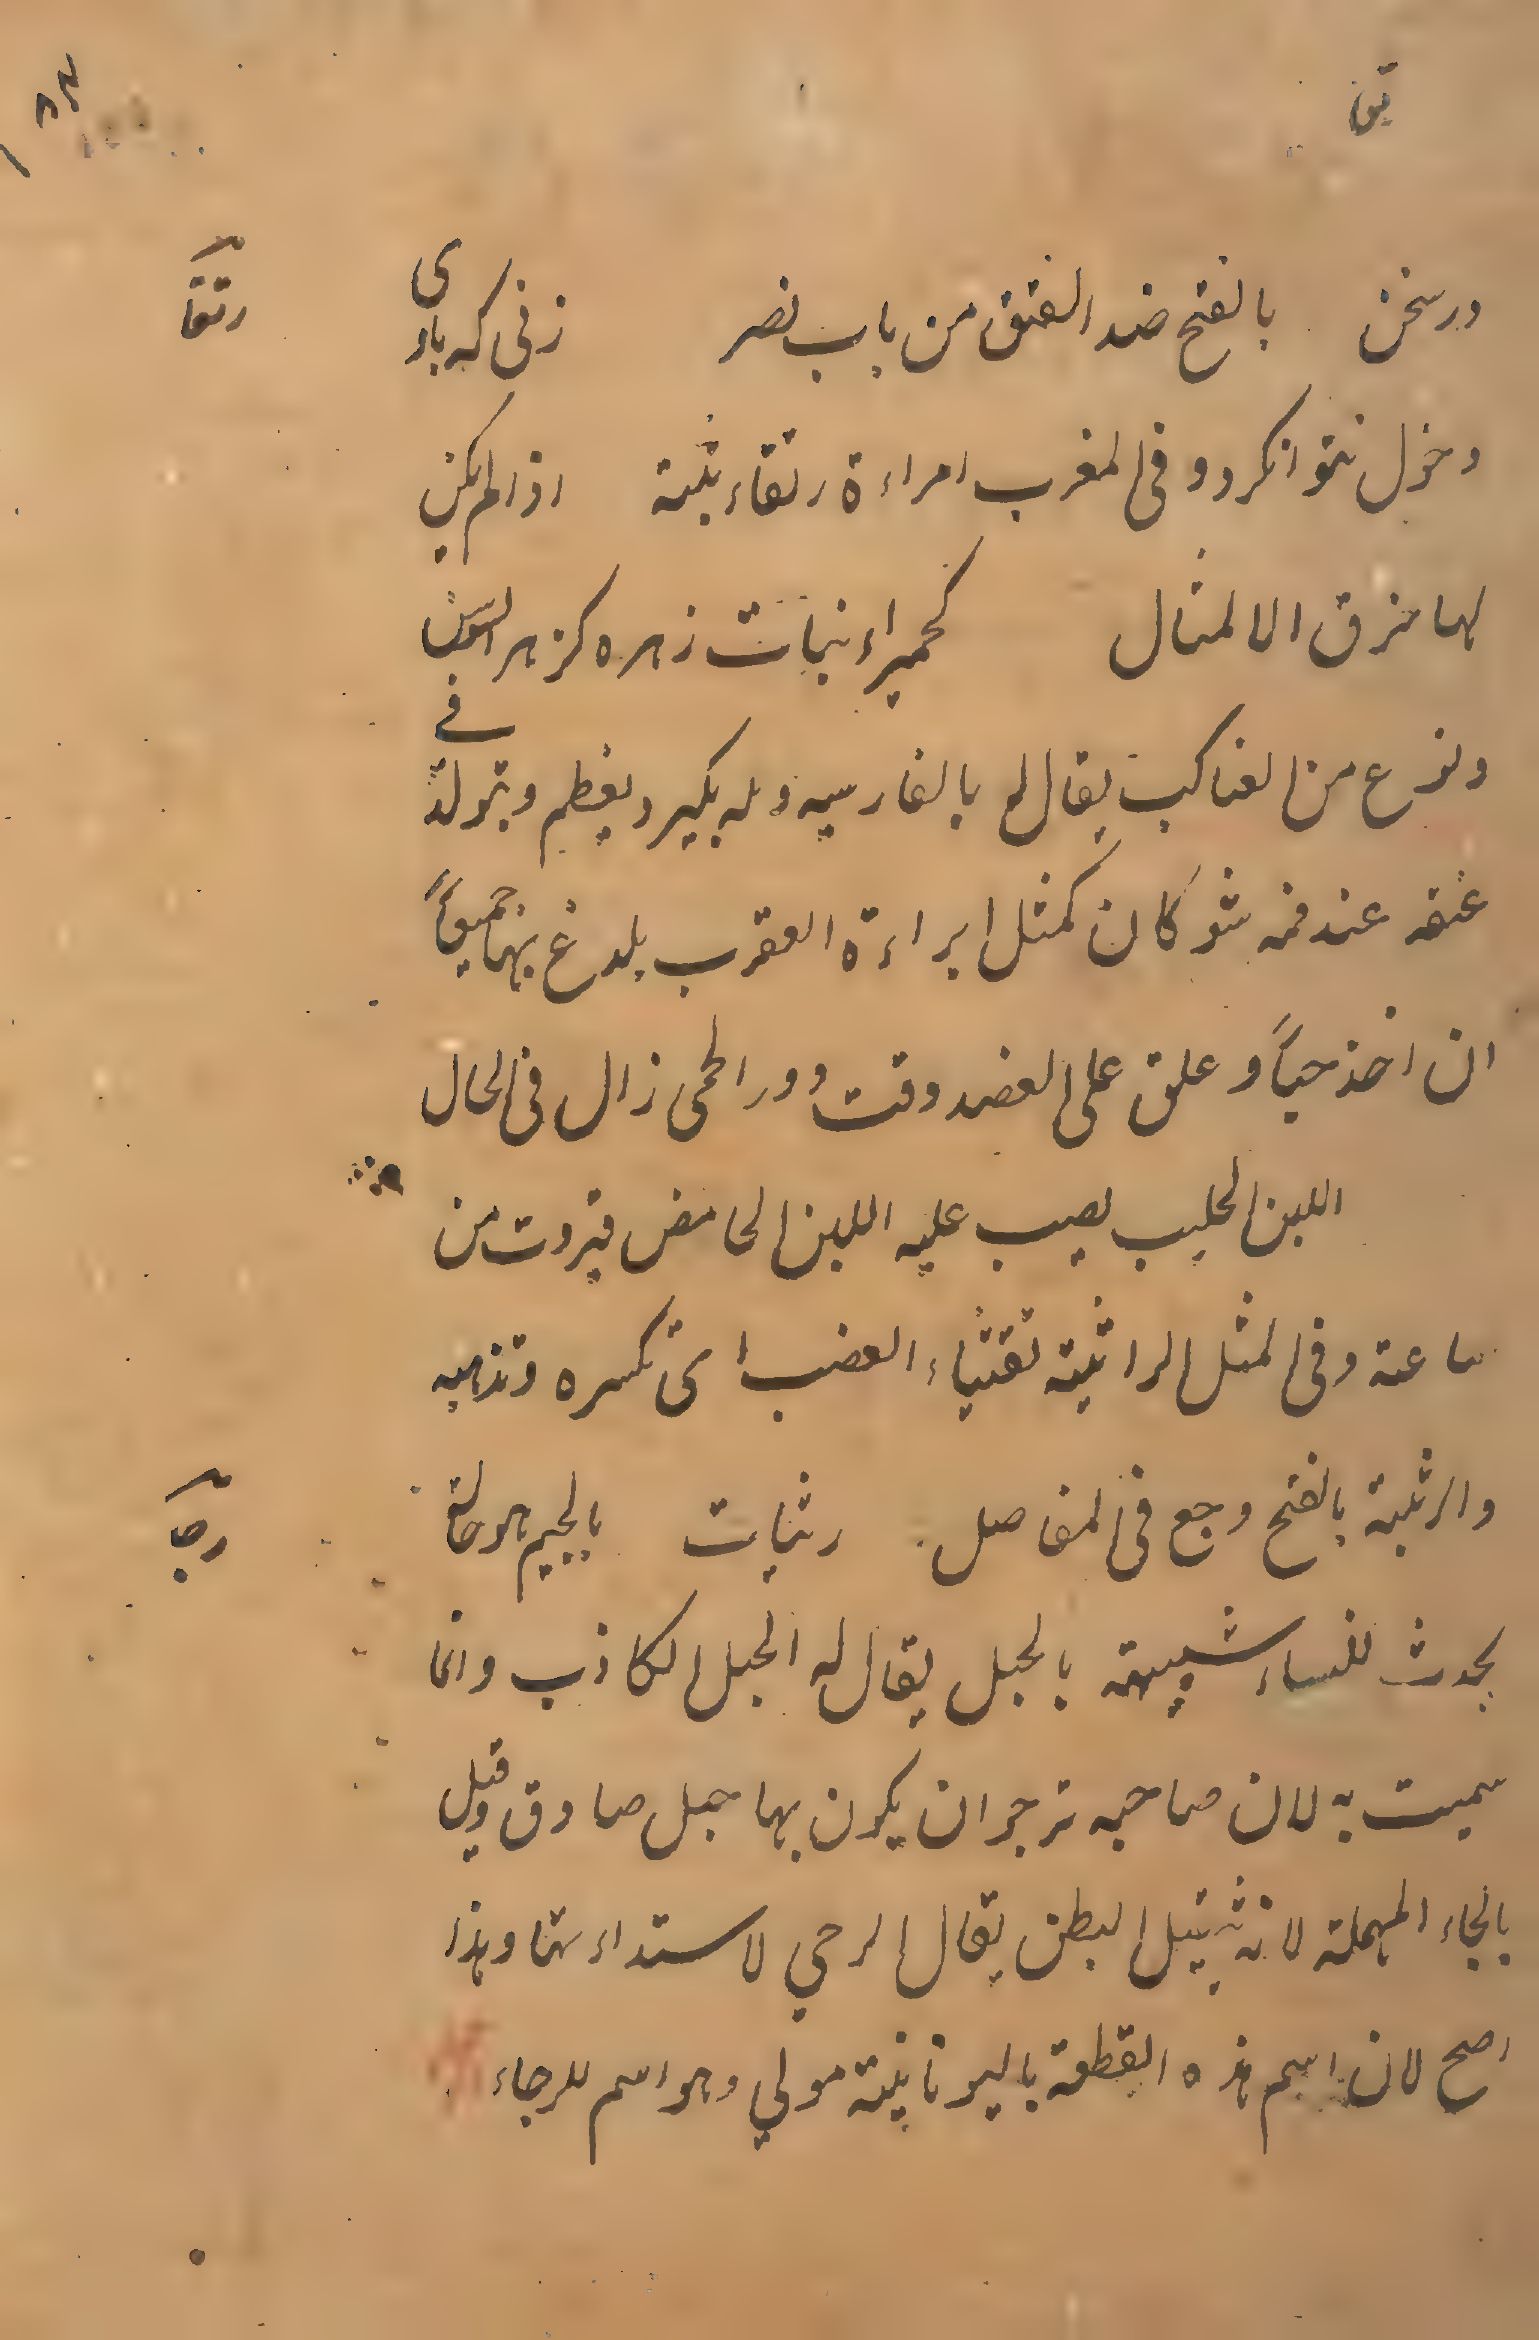 درسخن بالفتح ضد الفتق من باب نصر زنی که باوی
رتقا
دخول نتوانکرد و فی المغرب امراءة رتقاء بثیة اذا لم یکن
لها خرق الا لمثال کحمیراء نبات زهره کزهر السوس
ونوع من العناکب یقال له بالفارسیه دله یکبر ویعظم ویتولد فی
عنقه عند فمه شوکان کمثل ابراءة العقرب یلدغ بهما جمیعاً
ان اخذ حیاً و علق علی العضد وقت دور الحمی زال فی الحال
اللبن الحلیب یصب علیه اللبن الحامض فیروت من
ساعته وفی المثل الراثیته تقثیاء الغضب ای تکسره وتذهبه
والرثیة بالفتح وجع فی المفاصل رثیات بالجیم هو حالة
رجا
یحدث للنساء شبیهته بالحبل یقال له الحبل الکاذب وانما
سمیت به لان صاحبه ترجو ان یکون بها حبل صادق وقیل
بالحاء المهملة لانه ثقیل البطن یقال الرحی لاستداءرتها وهذا
اصح لان اسم هذه القطعة بالیونانیة مولی وهو اسم للرجاء